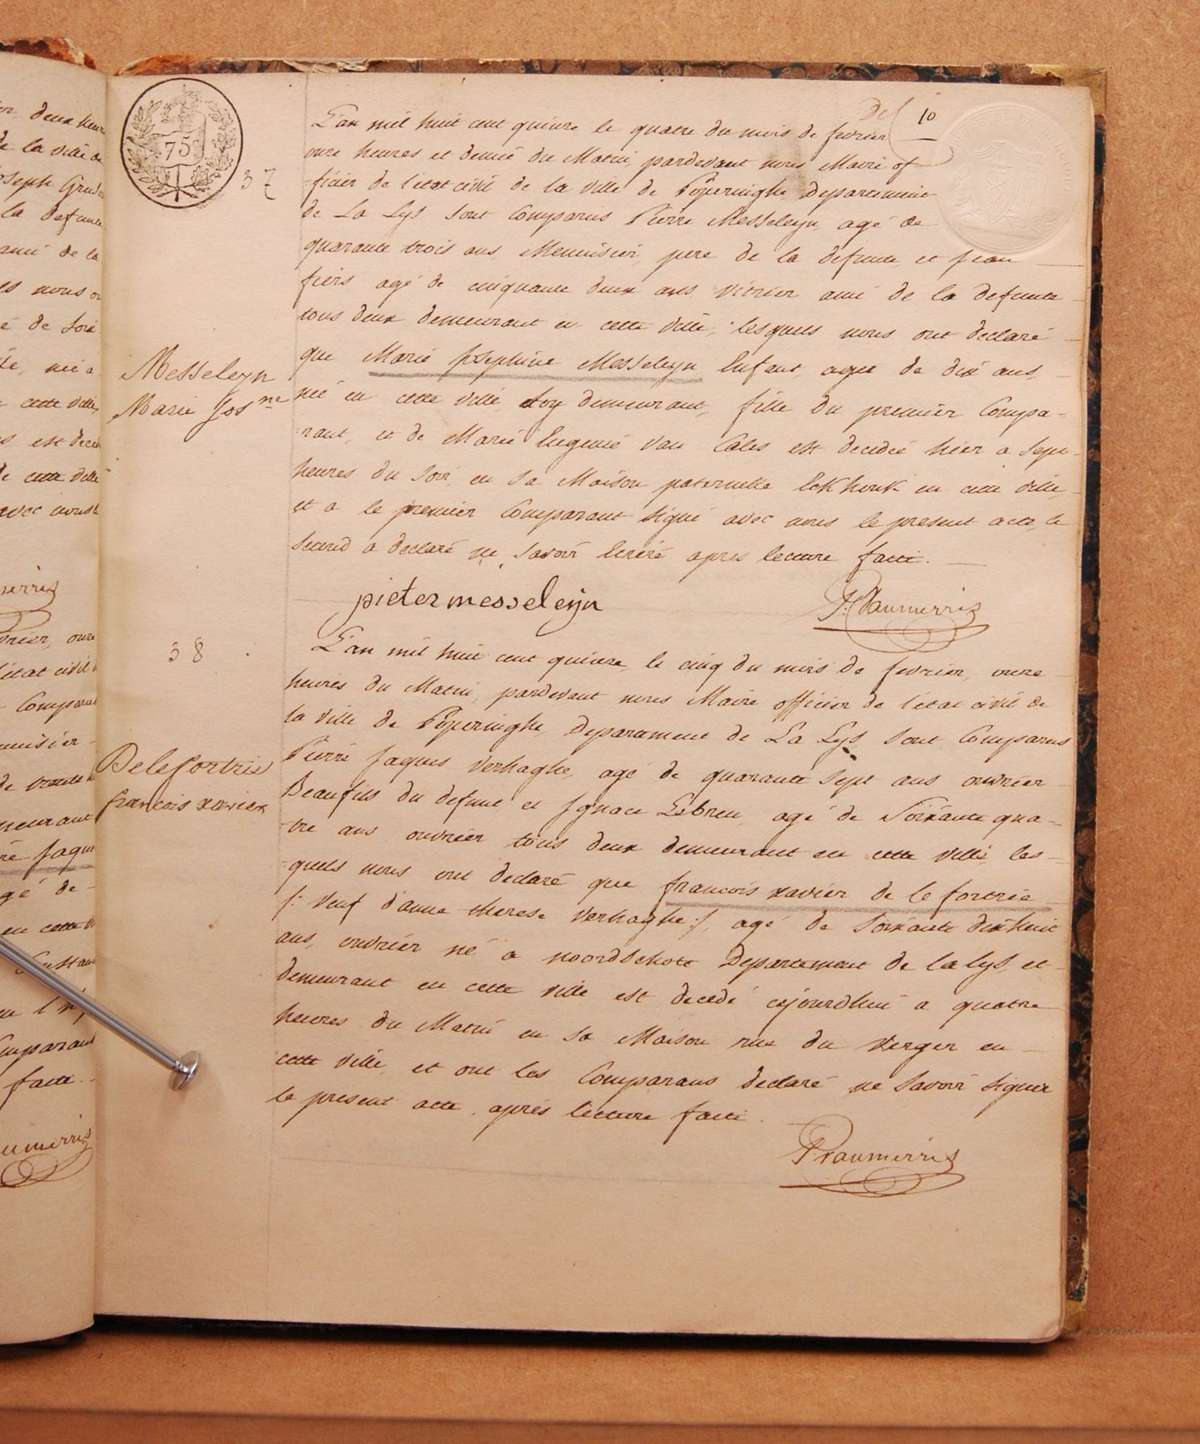 75
37
Del 10
L'an mil huit cent quinze le quatre du mois de fevrier
onze heures et demie du Matin, pardevant nous Maire of
ficier de l'etat civil de la ville de Poperinghe Departement
de La Lys sont Comparus Pierre Messeleyn, agé de
quarante trois ans, Menuisier, pere de la defunte, et Jean
fiers agé de cinquante deux ans vitrier ami de la defunte
tous deux demeurant en cette ville, lesquels nous ont declaré
que Marie Josephine Messeleyn Enfant, agée de dix ans,
née en cette ville et y demeurant, fille du premier Compa-
rant, et de Marie Eugenie van Cales est decedée hier a sept
heures du soir, en sa Maison paternelle Ekhouk en cette ville
et a le premier Comparant signé avec nous le present acte, le
second a declaré ne savoir Ecrire apres lecture faite.
Messeleyn
Marie Josne
pieter messeleyn
38
L'an mil huit cent quinze, le cinq du mois de fevrier, onze
heures du Matin, pardevant nous Maire officier de l'etat civil de
la ville de Poperinghe, Departement de La Lys sont Comparus
Pierre Jaques Verhaghe, agé de quarante sept ans ouvrier
Beaufils du defunt et Ignace Lebreu, agé de Soixante qua-
tre ans ouvrier tous deux demeurant en cette ville, les-
quels nous ont declaré que francois xavier de le fortrie
/: veuf d'anne therese verhaghe :/, agé de soixante dix huit
ans, ouvrier né a noordschote Departement de la Lys, et
demeurant en cette ville est decedé cejourdhui a quatre
heures du Matin en sa Maison rue du Verger en
cette ville, et ont les Comparans declaré ne savoir signer
le present acte, apres lecture faite.
Delefortrie
francois xavier